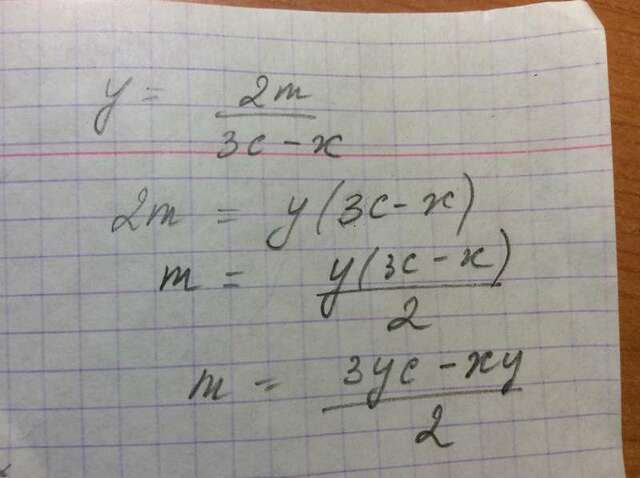 y = 2m / 3c - x
2m = y(3c - x)
m = y(3c - x) / 2
m = 3yc - xy / 2